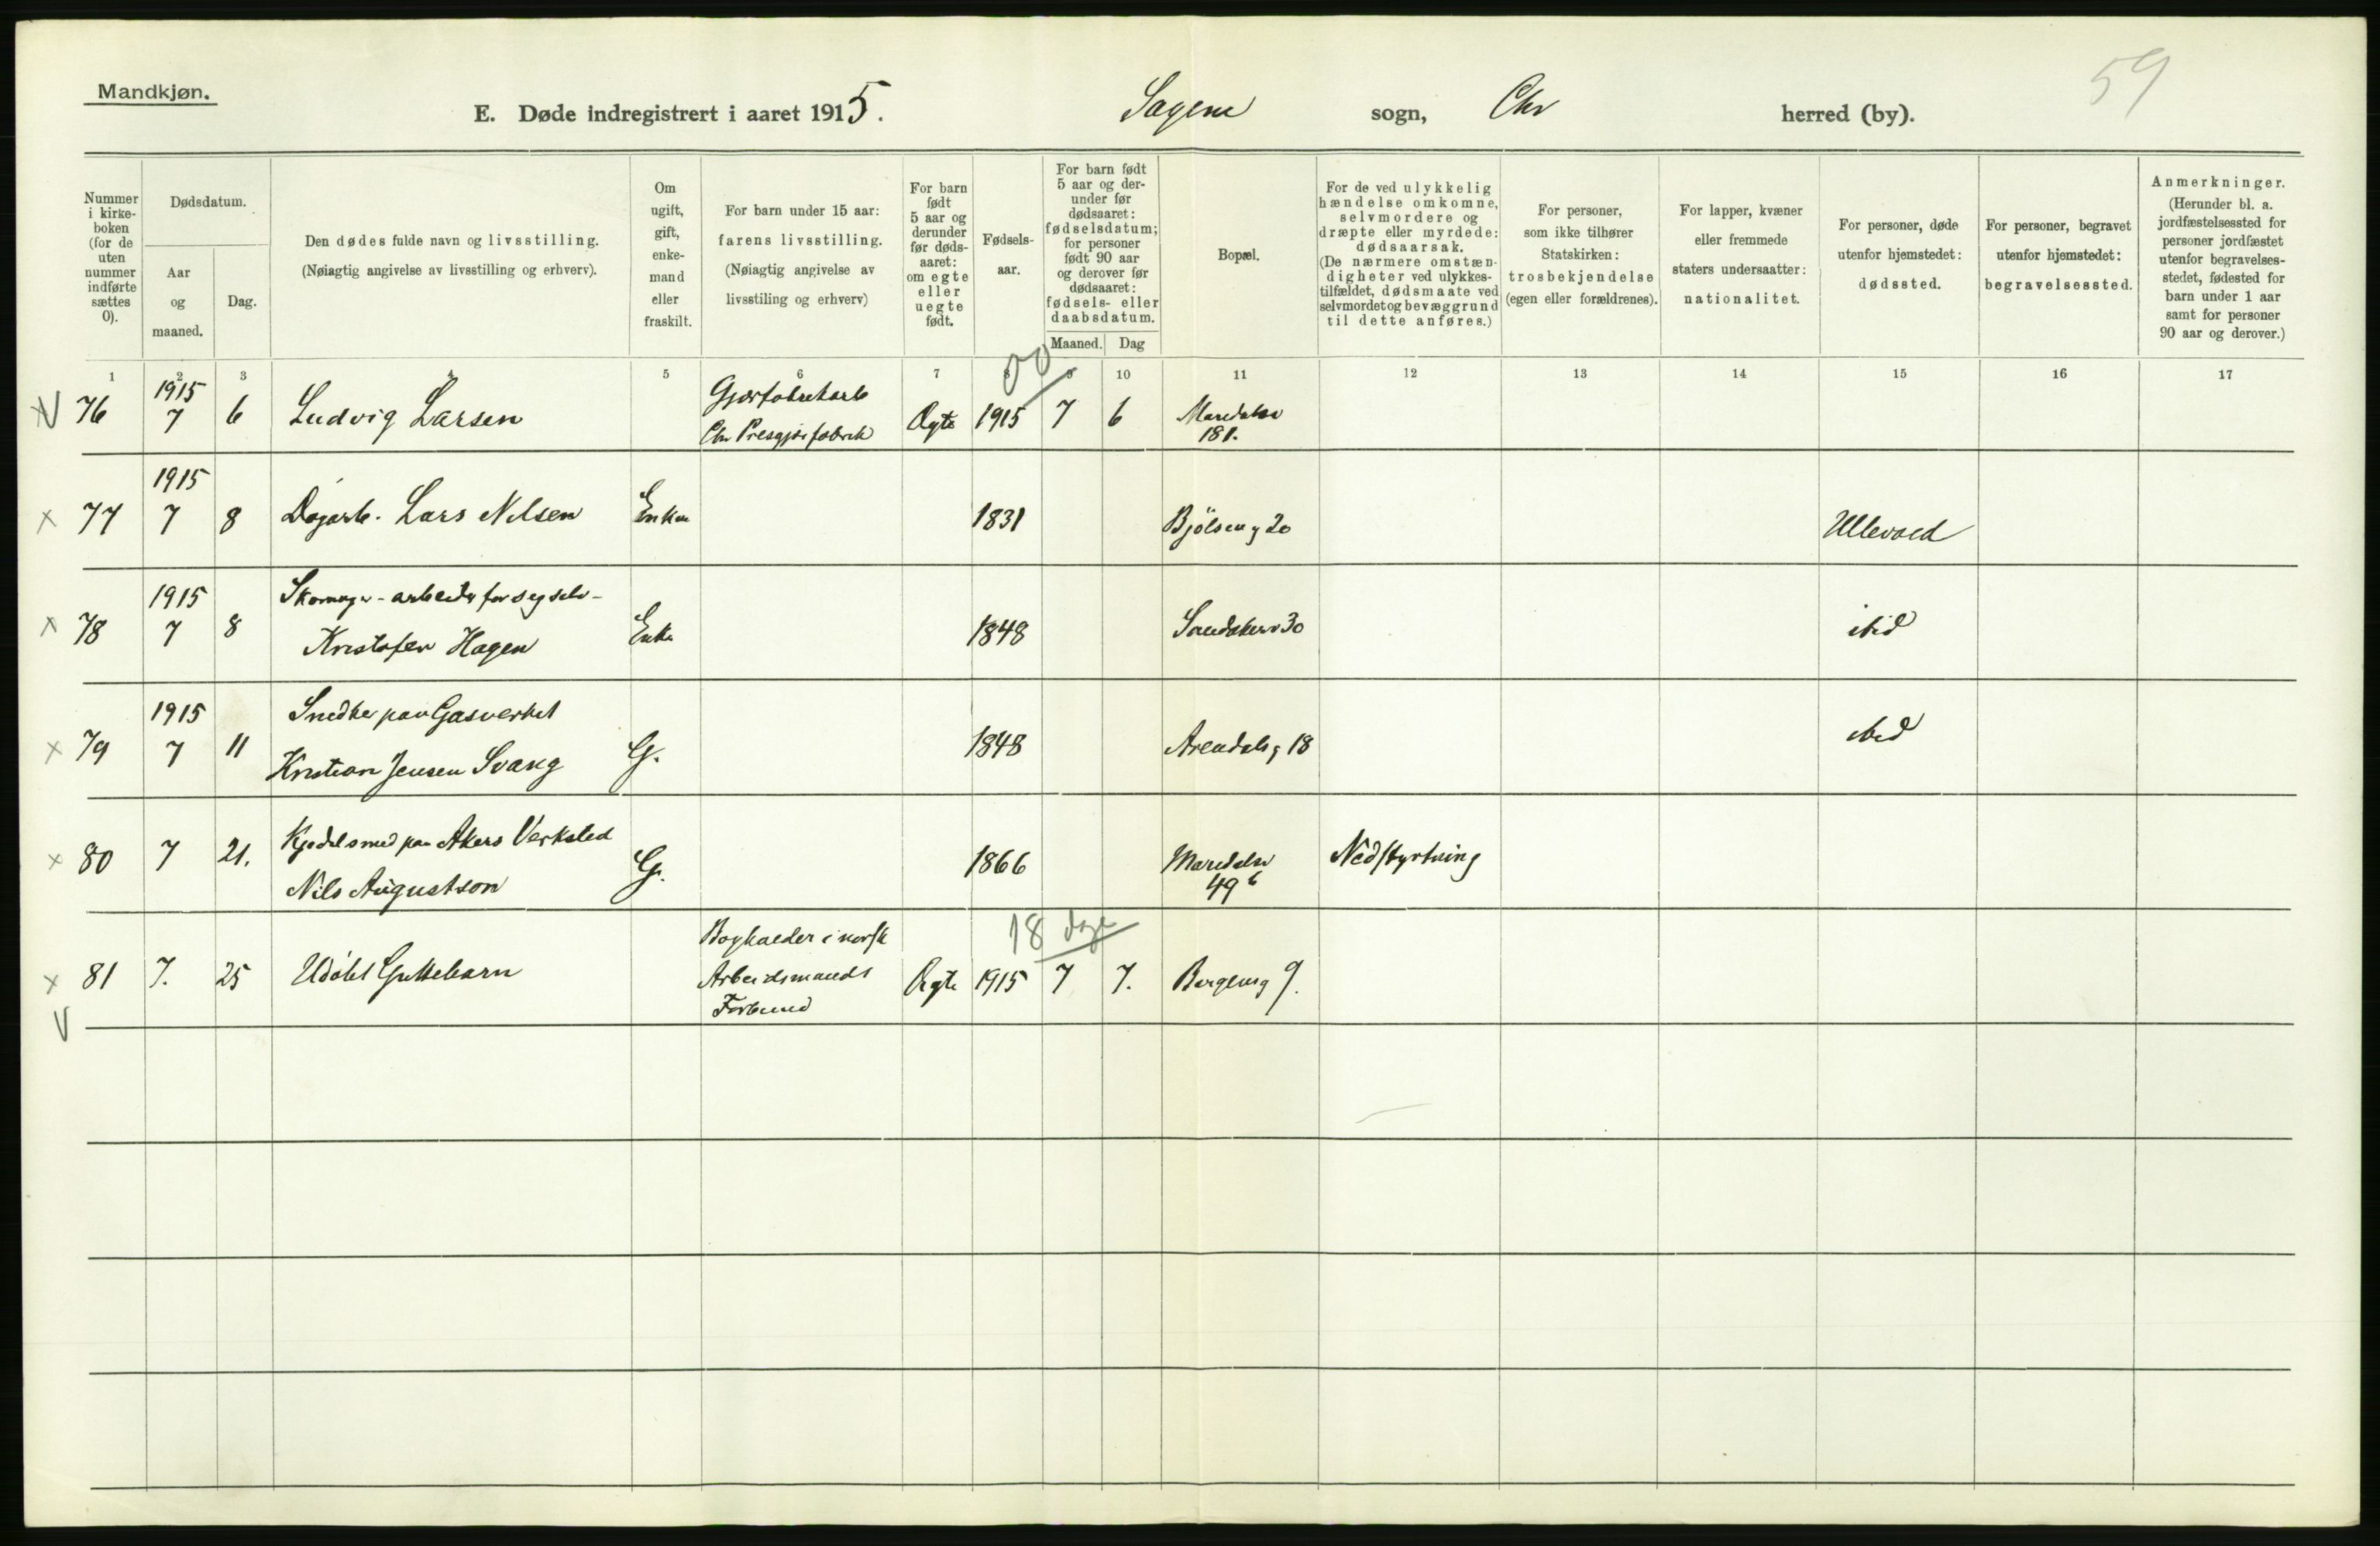 Mandkjøn.
59
E. Døde indregistrert i aaret 1915. Sagene sogn, Chr herred (by).
Nummer i kirkeboken (for de uten nummer indførte sættes 0).
Dødsdatum.
Aar og maaned.
Dag.
Den dødes fulde navn og livsstilling.
(Nøiagtig angivelse av livsstilling og erhverv).
Om ugift, gift, enkemand eller fraskilt.
For barn under 15 aar: farens livsstilling.
(Nøiagtig angivelse av livsstiling og erhverv)
For barn født 5 aar og derunder før dødsaaret: om egte eller uegte født.
Fødselsaar.
For barn født 5 aar og derunder før dødsaaret: fødselsdatum; for personer født 90 aar og derover før dødsaaret: fødsels- eller daabsdatum.
Maaned. Dag
Bopæl.
For de ved ulykkelig hændelse omkomne, selvmordere og dræpte eller myrdede: dødsaarsak.
(De nærmere omstændigheter ved ulykkestilfældet, dødsmaate ved selvmordet og bevæggrund til dette anføres.)
For personer, som ikke tilhører Statskirken: trosbekjendelse (egen eller forældrenes).
For lapper, kvæner eller fremmede staters undersaatter: nationalitet.
For personer, døde utenfor hjemstedet: dødssted.
For personer, begravet utenfor hjemstedet: begravelsessted.
Anmerkninger.
(Herunder bl. a. jordfæstelsessted for personer jordfæstet utenfor begravelsesstedet, fødested for barn under 1 aar samt for personer 90 aar og derover.)
1 2 3 4 5 6 7 8 9 10 11 12 13 14 15 16 17
00
76 1915 7 6 Ludvig Larsen Gjærfabrikarb Chr Presgjærfabrik Ægte 1915 7 6 Maridalsv 181.
77 1915 7 8 Dagarb. Lars Nilsen Enkem 1831 Bjölseng 20 Ullevold
78 1915 7 8 Skomager - arbeider for seg selv -
Kristofer Hagen Enke 1848 Sandakerv 30 ibid
79 1915 7 11 Snedker paa Gasverket
Kristian Jensen Svang G. 1848 Arendalsg 18 ibid
80 7 21. Kjedelsmed paa Akers Verksted
Nils Augustson G. 1866 Maridalsv 49 b Nedstyrtning
18 dage
81 7. 25 Udöbt Guttebarn Bogholder i norsk Arbeidsmands Forbund Ægte 1915 7 7. Bergensg 9.